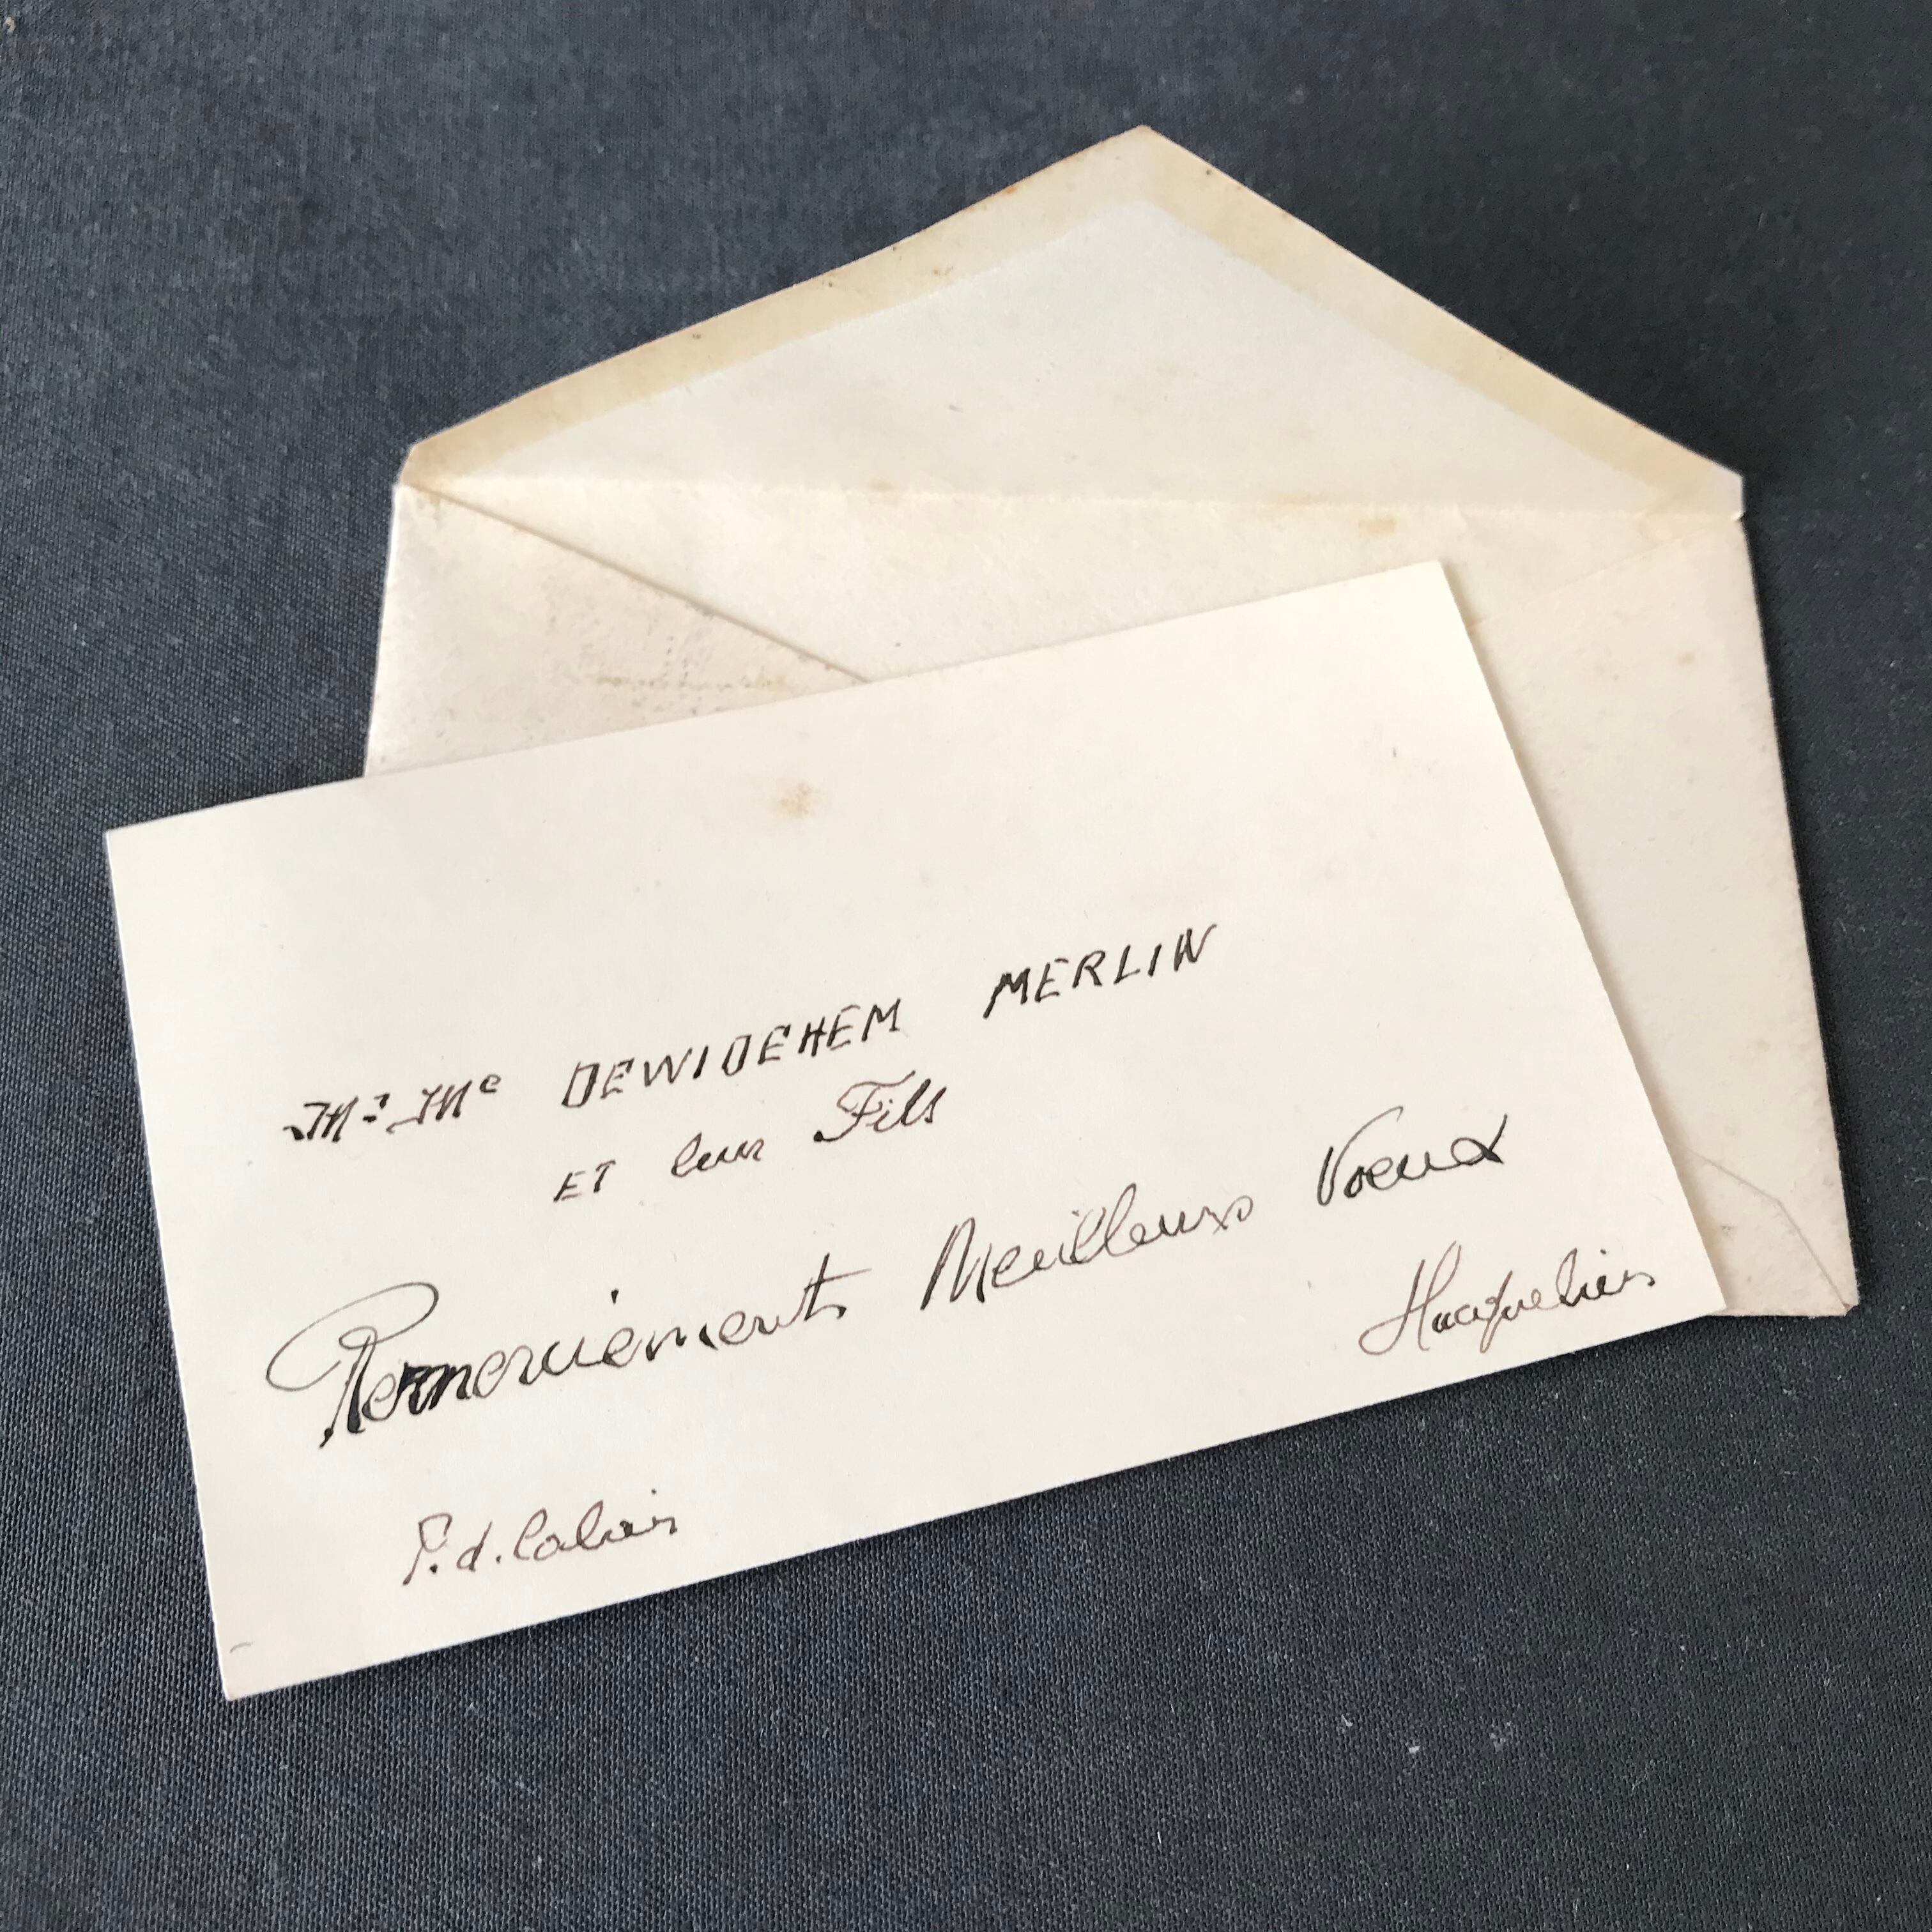 Mr Me DEWIDEHEM MERLIN
ET leur Fils
Remerciements Meilleurs Voeux
Hacqueliers
P.d.Calais